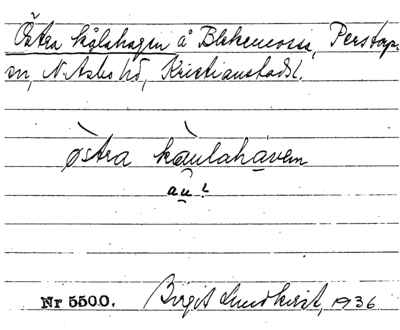 Östra kålahagen å Blekemossa, Perstorp
sn, N. Åsbo hd, Kristianstads l.
östra kåulahávem
au!
Nr 5500. Birgit Lundkvist, 1936